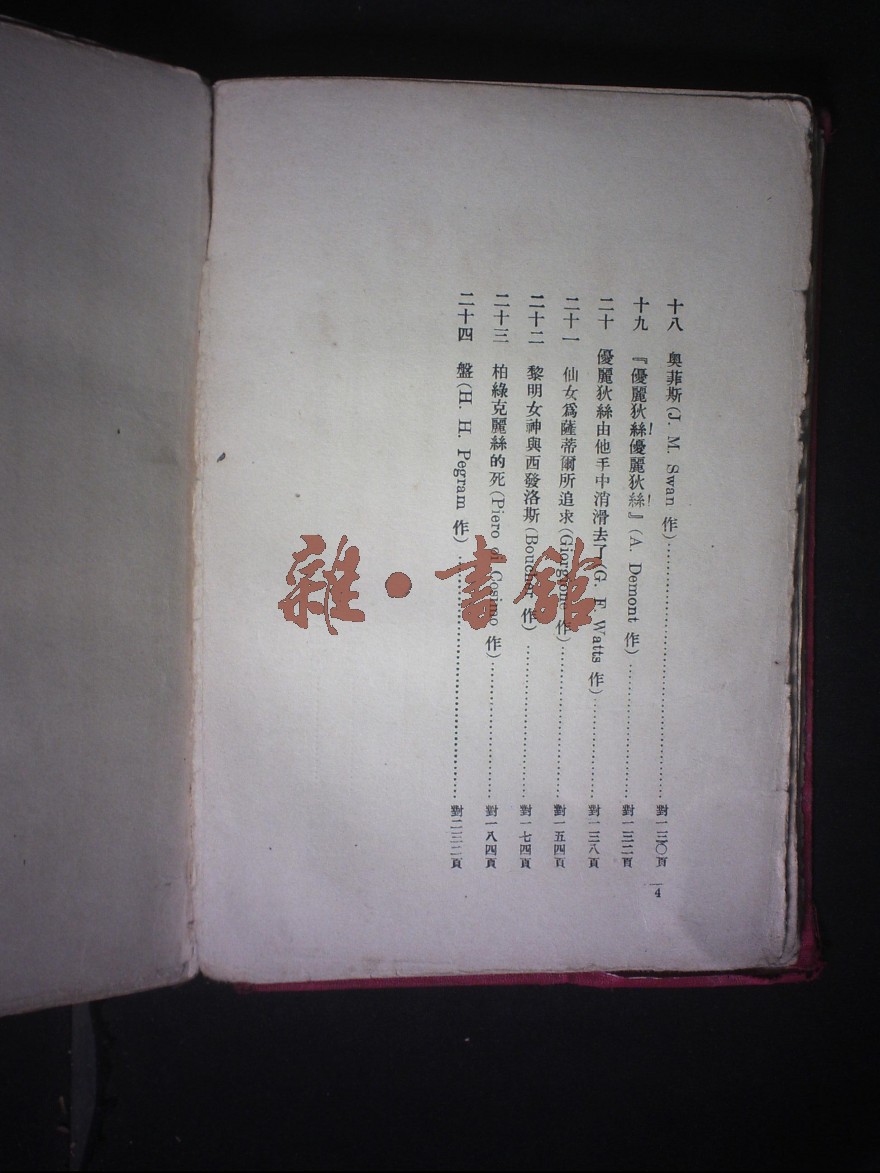 十八 奧菲斯(J. M. Swan 作)……對一三〇頁
十九 『優麗狄絲!優麗狄絲!』(A. Demont 作)……對一三二頁
二十 優麗狄絲由他手中消滑去了(G. F. Watts 作)……對一三八頁
二十一 仙女爲薩蒂爾所追求(Giorgione 作)……對一五四頁
二十二 黎明女神與西發洛斯(Boucher 作)……對一七四頁
二十三 柏綠克麗絲的死(Piero of Cosimo 作)……對一八四頁
二十四 盤(H. H. Pegram 作)……對二三二頁
4
雜·書館